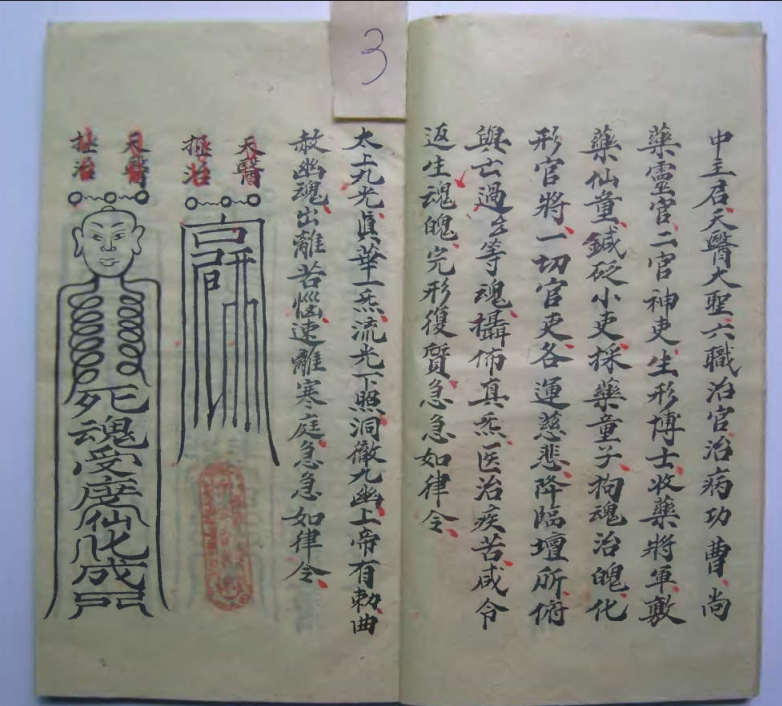 中主君天醫大聖六職治官治病功曹尚
藥靈官二官神吏生形博士收藥將軍敷
藥仙童鍼砭小吏採藥童子拘魂治魄化
形官將一切官吏各運慈悲降臨壇所俯
與亡過等魂攝佈真炁医治疾苦咸令
返生魂魄完形復質急急如律令
3
太上九光真華一炁流光下照洞徹九幽上帝有勅曲
赦幽魂出離苦惱速離寒庭急急如律令
天醫
拯治
天醫
拯治
死魂受度仙化成